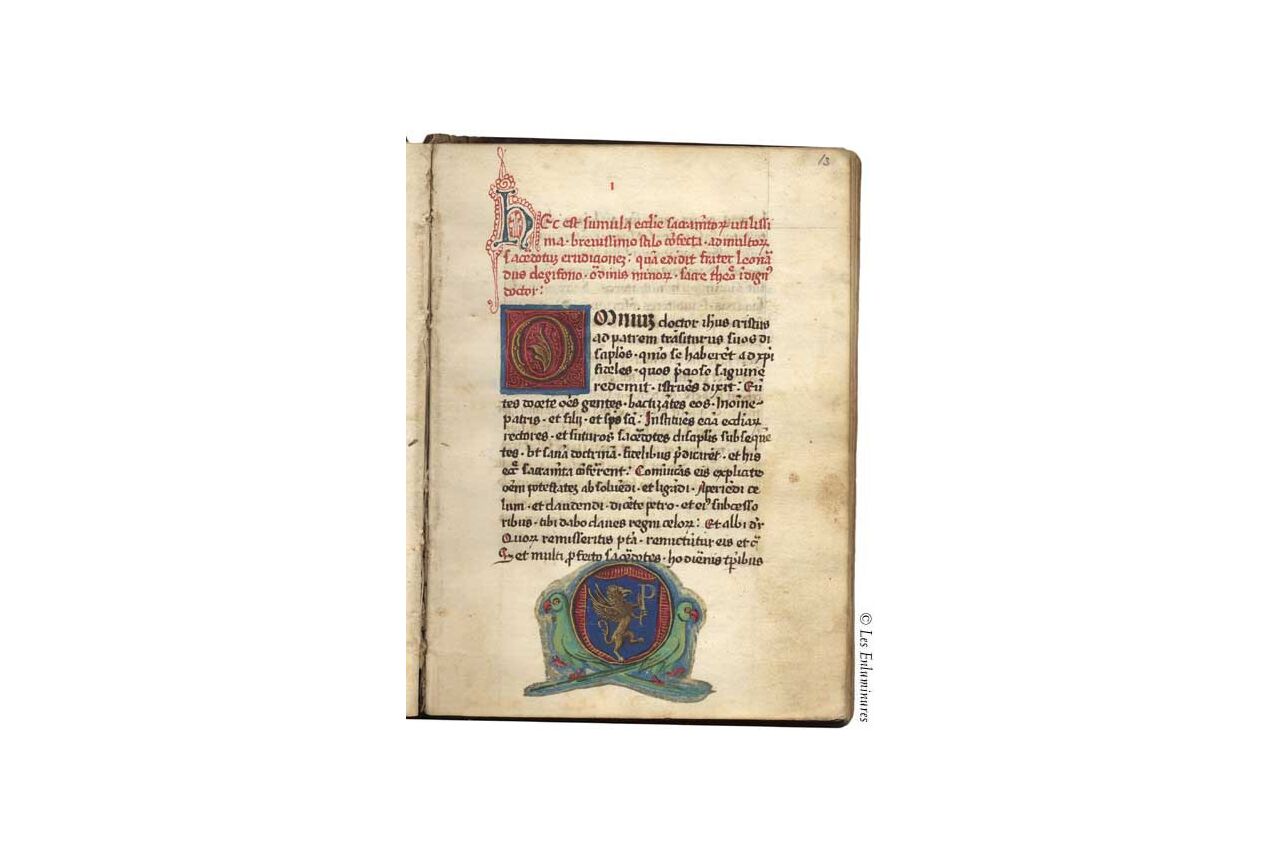 13
I
hEc est sumula ecclie sacramтoꝝ utilissi
ma · brevissimo stilo cōfecta · ad multoꝝ
sacẽdotuȝ erudicioneȝ : quā edidit frater Leonā
dus de gifono · ōdinis minoꝝ · sacre theoᵉ īdignᵘˢ
doctor :
OMniuȝ doctor ihus cristus
ad patrem trāsiturus suos di
scip̄los · qm̄o se haberēt ad xp̄i
fideles · quos p̄cioso sāguine
redemit · istruēs dixit : Eū
tes docete oēs gentes · bactizātes eos · In oīne
patris · et filij · et sp̄s sc̄i : Instituēs eciā eccliaꝝ
rectores · et futuros sacẽdotes discip̄lis subseque
tes · ut sanā doctrinā · fidelibus p̄dicarēt · et his
ecᶜ sacram̄ta cōferrent : Comūicās eis explicite
oēm potestateȝ absoluēdi · et ligādi · Aperiēdi ce
lum · et claudendi · dicēte petro · et eiᵘˢ subcesso
ribus · tibi dabo claves regni celoꝝ : Et alibi dr̄
Quoꝝ remisseritis pc̄ta · remictūtur eis et c̄
Set multi profecto sacẽdotes · hodiernis tp̄ribus
P
© Les Enluminures